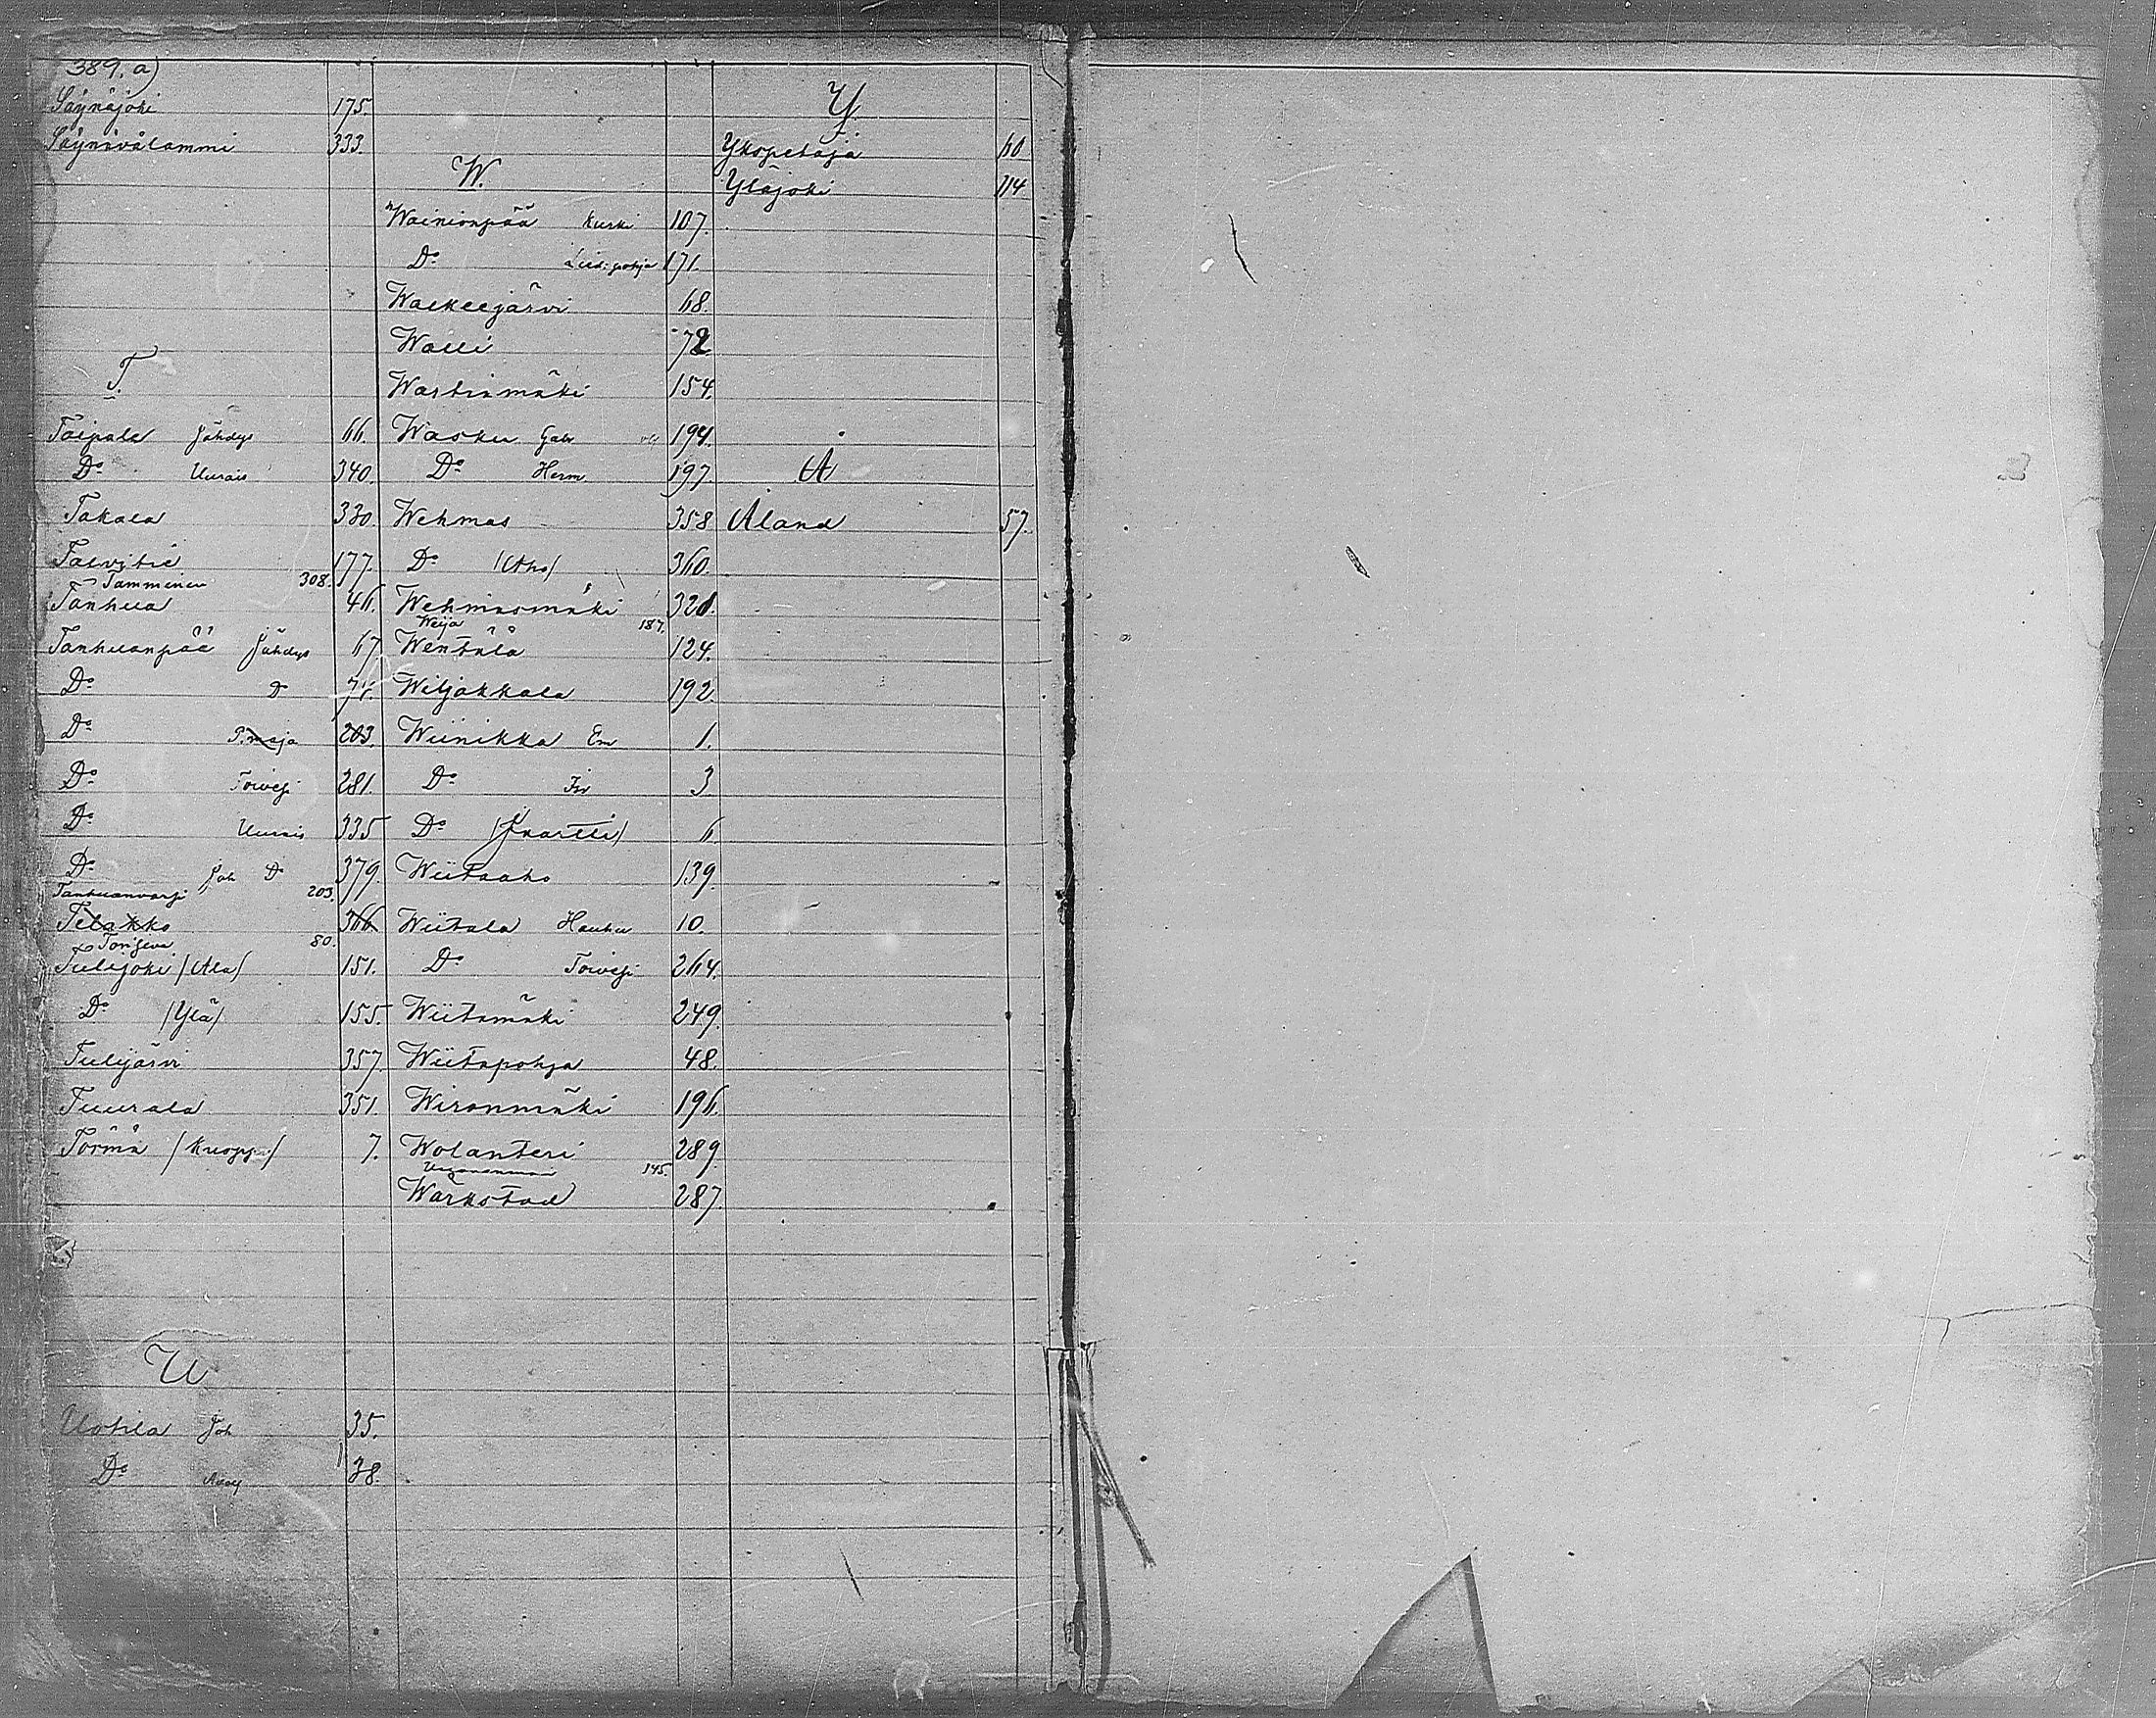 389. a)
Säynäjoki 175.
Säynävälammi 333.
T.
Taipale Jähdys 66.
Do Uurais 340.
Takala 330.
Talvitie 177.
Tamminen 308.
Tanhua 46.
Tanhuanpää Jähdys 67
Do Do 71.
Do P.maja 203.
Do Toivesi 281.
Do Uurais 335
Do Joh Do 379.
Tanhuanvorsi 203.
Telakko 366
Torijeva 80.
Tulijoki /Ala/ 151.
Do /Ylä/ 155.
Tulijärvi 357.
Tuurala 351.
Törmä /Kuoppa/ 7.
U
Uotila Joh 35.
Do Adolf 38.
W.
Wainionpää Kurki 107.
Do Lied: pohja 171.
Walkeejärvi 68.
Walli 72
Wastiamäki 154.
Wasku Gabr 194.
Do Herm 197.
Wehmas 358
Do /Aho/ 360.
Wehmasmäki 321.
Weija 187.
Wentälä 124.
Wiljakkala 192.
Wiinikka Em 1.
Do Is 3
Do /Knartti/ 6.
Wiitaaho 139.
Wiitala Hauhu 10.
Do Toivesi 264.
Wiitamäki 249.
Wiitapohja 48.
Wironmäki 196.
Wolanteri 289.
145.
Wärkstad 287.
Y.
Ykspetäjä 60
Yläjoki 114
Å
Åland 57.